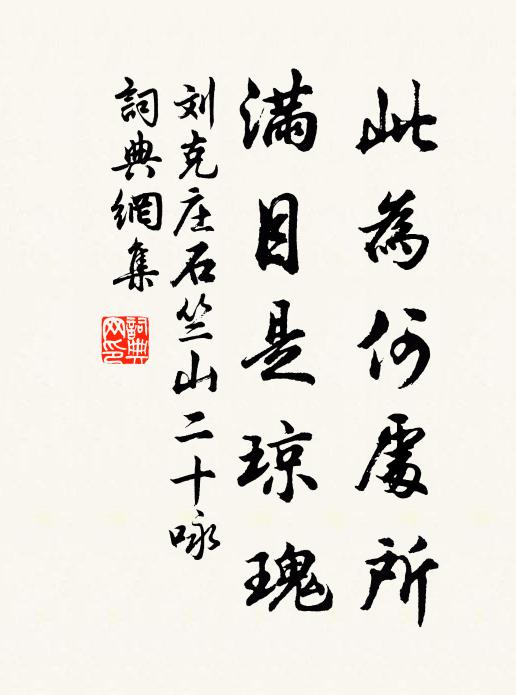 此為何處所
滿目是琼瑰
刘克庄石竺山二十咏
詞典網集
詞典網印